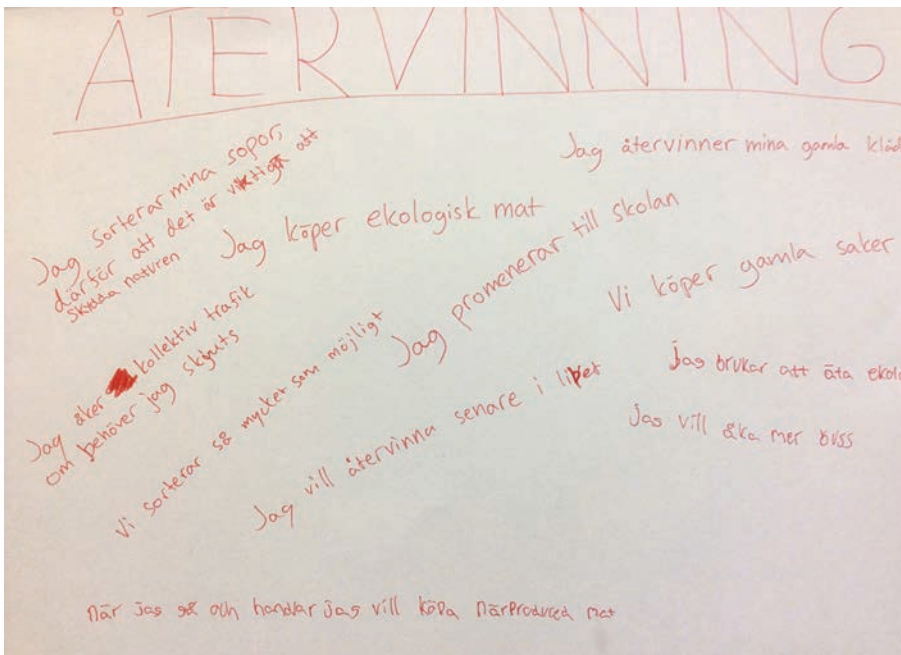 ÅTERVINNING
Jag sorterar mina sopor,
därför att det är viktigt att
skydda naturen
Jag återvinner mina gamla kläd
Jag köper ekologisk mat
Jag promenerar till skolan
Vi köper gamla saker
Jag åker kollektiv trafik
om behöver jag skjuts
Vi sorterar så mycket som möjligt
Jag vill återvinna senare i livet
Jag brukar att äta ekolo
Jag vill åka mer buss
när jag gå och handlar jag vill köpa närproduced mat